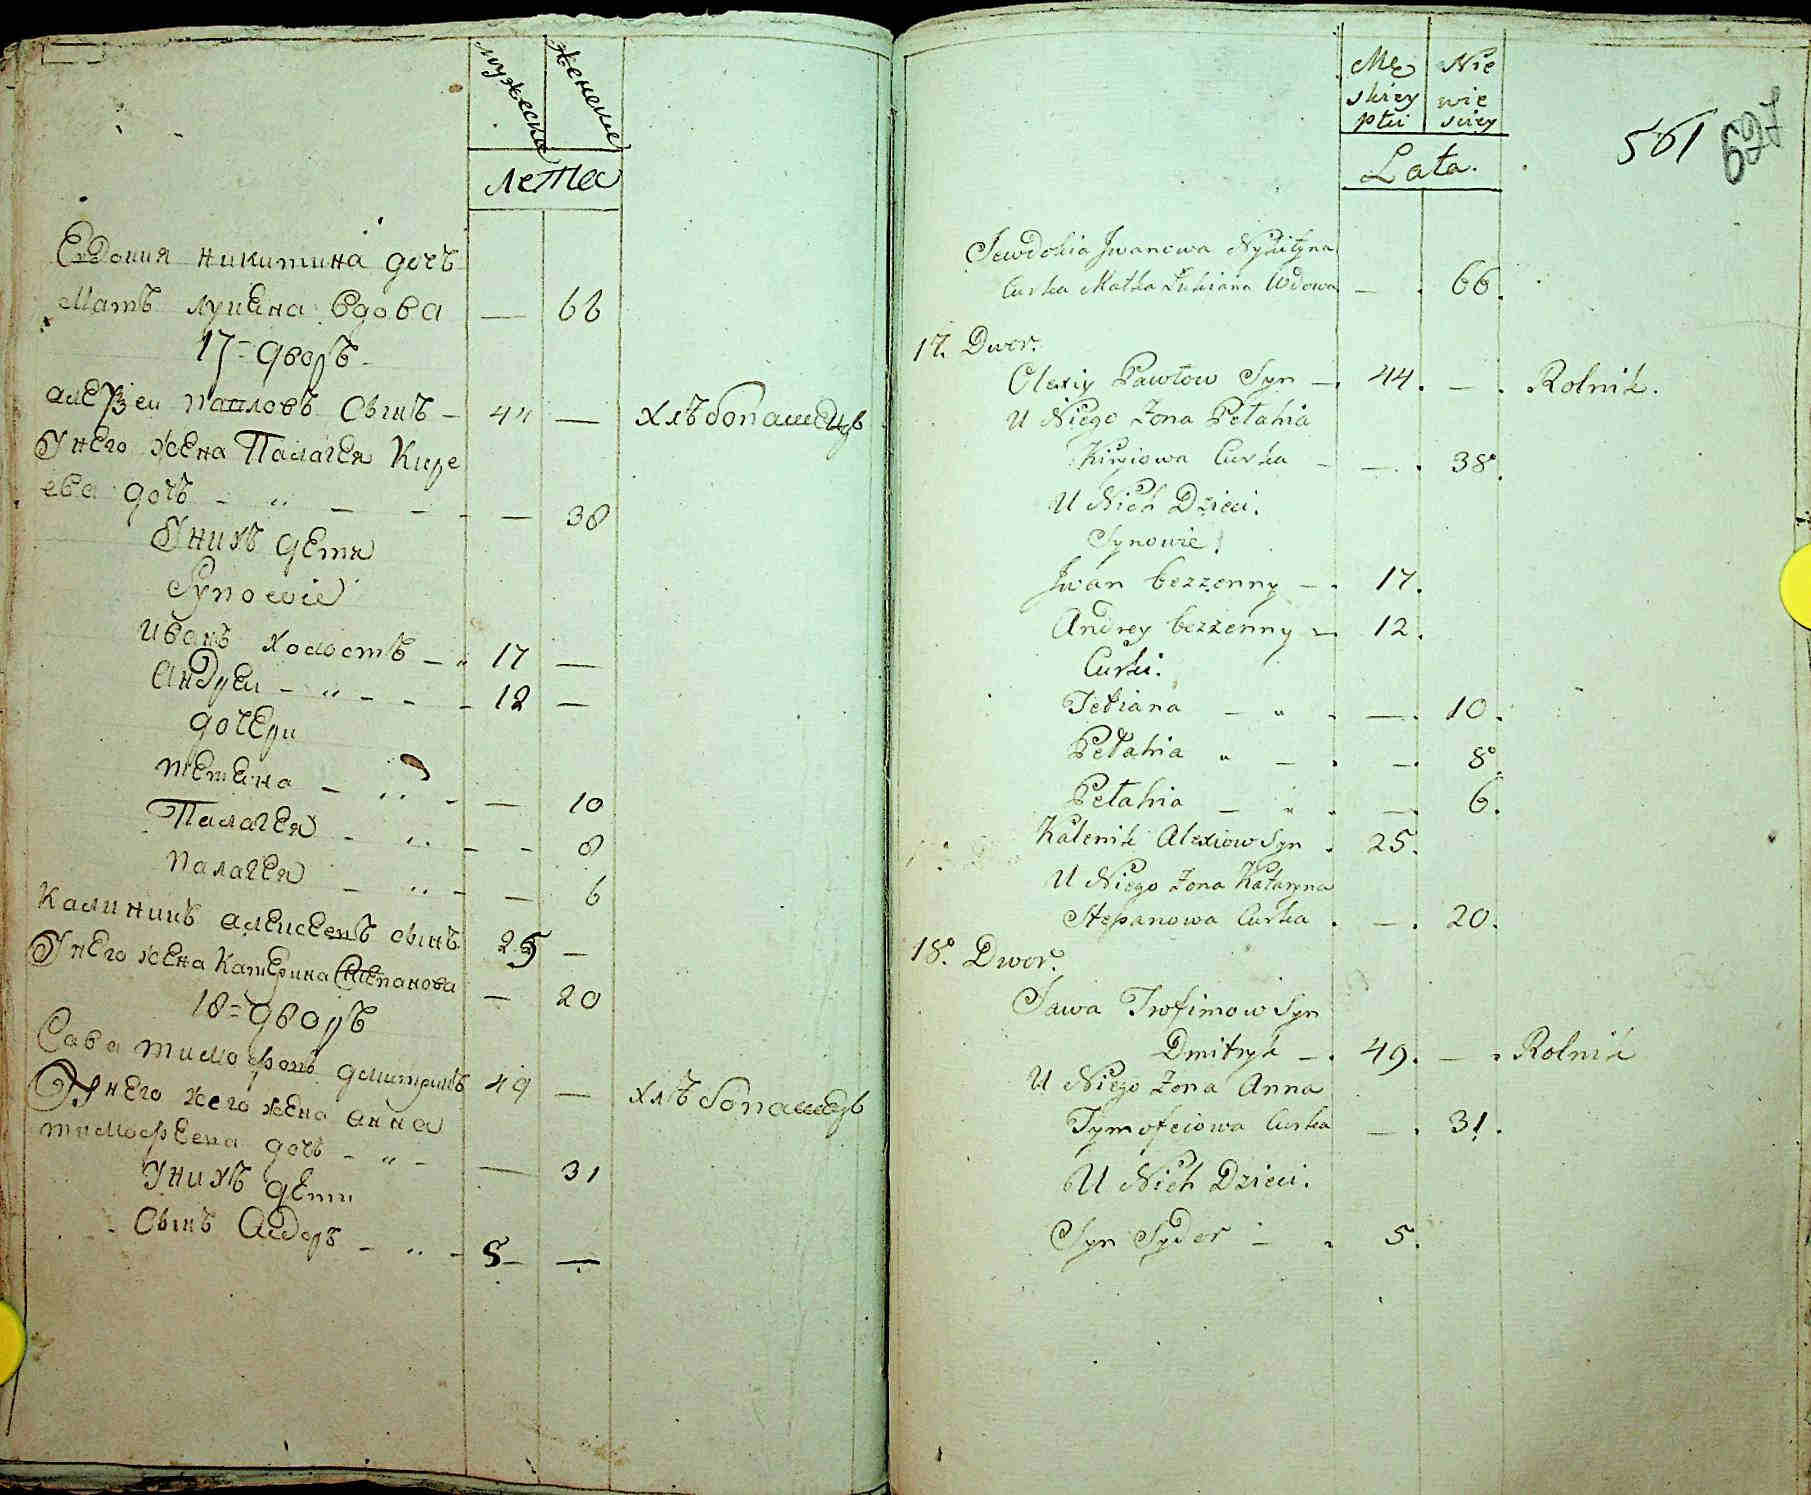 мужеска
женска
лета
Евдокия никитина дочъ
мать лукяна вдова — 66
17=дворъ
алеѯеи павловъ сынъ — 44 — хлѣбопашецъ
Унего жена Палагея Кире
ева дочъ - „ - - - — 38
Унихъ детя
Synowie
иванъ холостъ — „ 17 —
Андреи - „ - - - 12 —
дочери
тетяна - „ - — 10
Палагея - „ - - 8
палагея - „ - — 6
калиникъ алексеевъ сынъ 25 —
Унего жена катерина Степанова — 20
18=дворъ
Сава тимофовъ дмитрикъ 49 — хлѣбопашецъ
Унего жена анна
тимофеева дочъ - „ - — 31
Унихъ дети
Сынъ Сидоръ - „ - 5 —
Mę Nie
skiey wie
płci sciey
Lata.
561
627
Jewdokia Jwanowa Nykityna
Curka Matka Łukiana Wdowa — . 66.
17. Dwor.
Olexiy Pawłow Syn —. 44. — . Rolnik.
U Niego Zona Pełahia
Kiryiowa Curka - — . 38.
U Nich Dzieci.
Synowie.
Jwan bezżenny — . 17.
Andrey bezżenny — . 12.
Curki.
Tetiana — „ . —. 10.
Pełahia „ — . —. 8.
Pełahia — „ . —. 6.
Kalenik Alexiow Syn . 25.
U Niego Zona Kataryna
Stepanowa Curka . — . 20.
18. Dwor.
Sawa Trofimow Syn
Dmitryk — . 49. — . Rolnik
U Niego Zona Anna
Tymofeiowa Curka — . 31.
U Nich Dzieci.
Syn Sydor — . 5.